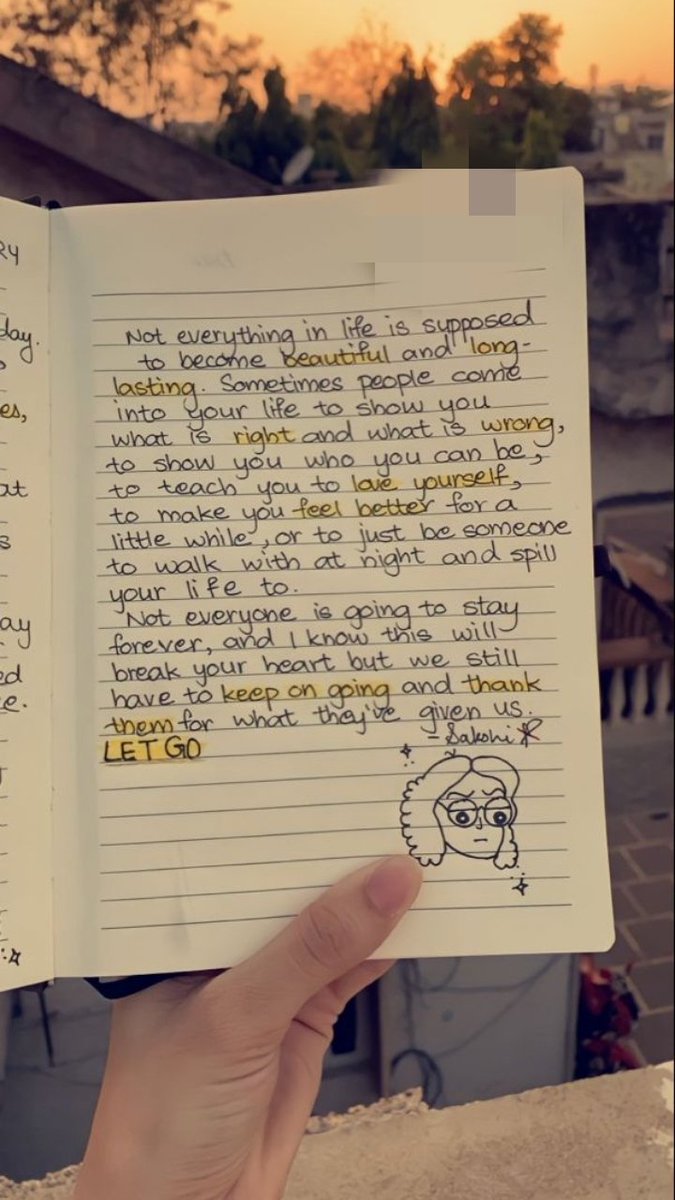 RY
day.
es,
at
s
ay
ed
e.
Not everything in life is supposed
to become beautiful and long-
lasting. Sometimes people come
into your life to show you
what is right and what is wrong,
to show you who you can be,
to teach you to love yourself,
to make you feel better for a
little while, or to just be someone
to walk with at night and spill
your life to.
Not everyone is going to stay
forever, and I know this will
break your heart but we still
have to keep on going and thank
them for what they've given us.
- Sakshi
LET GO